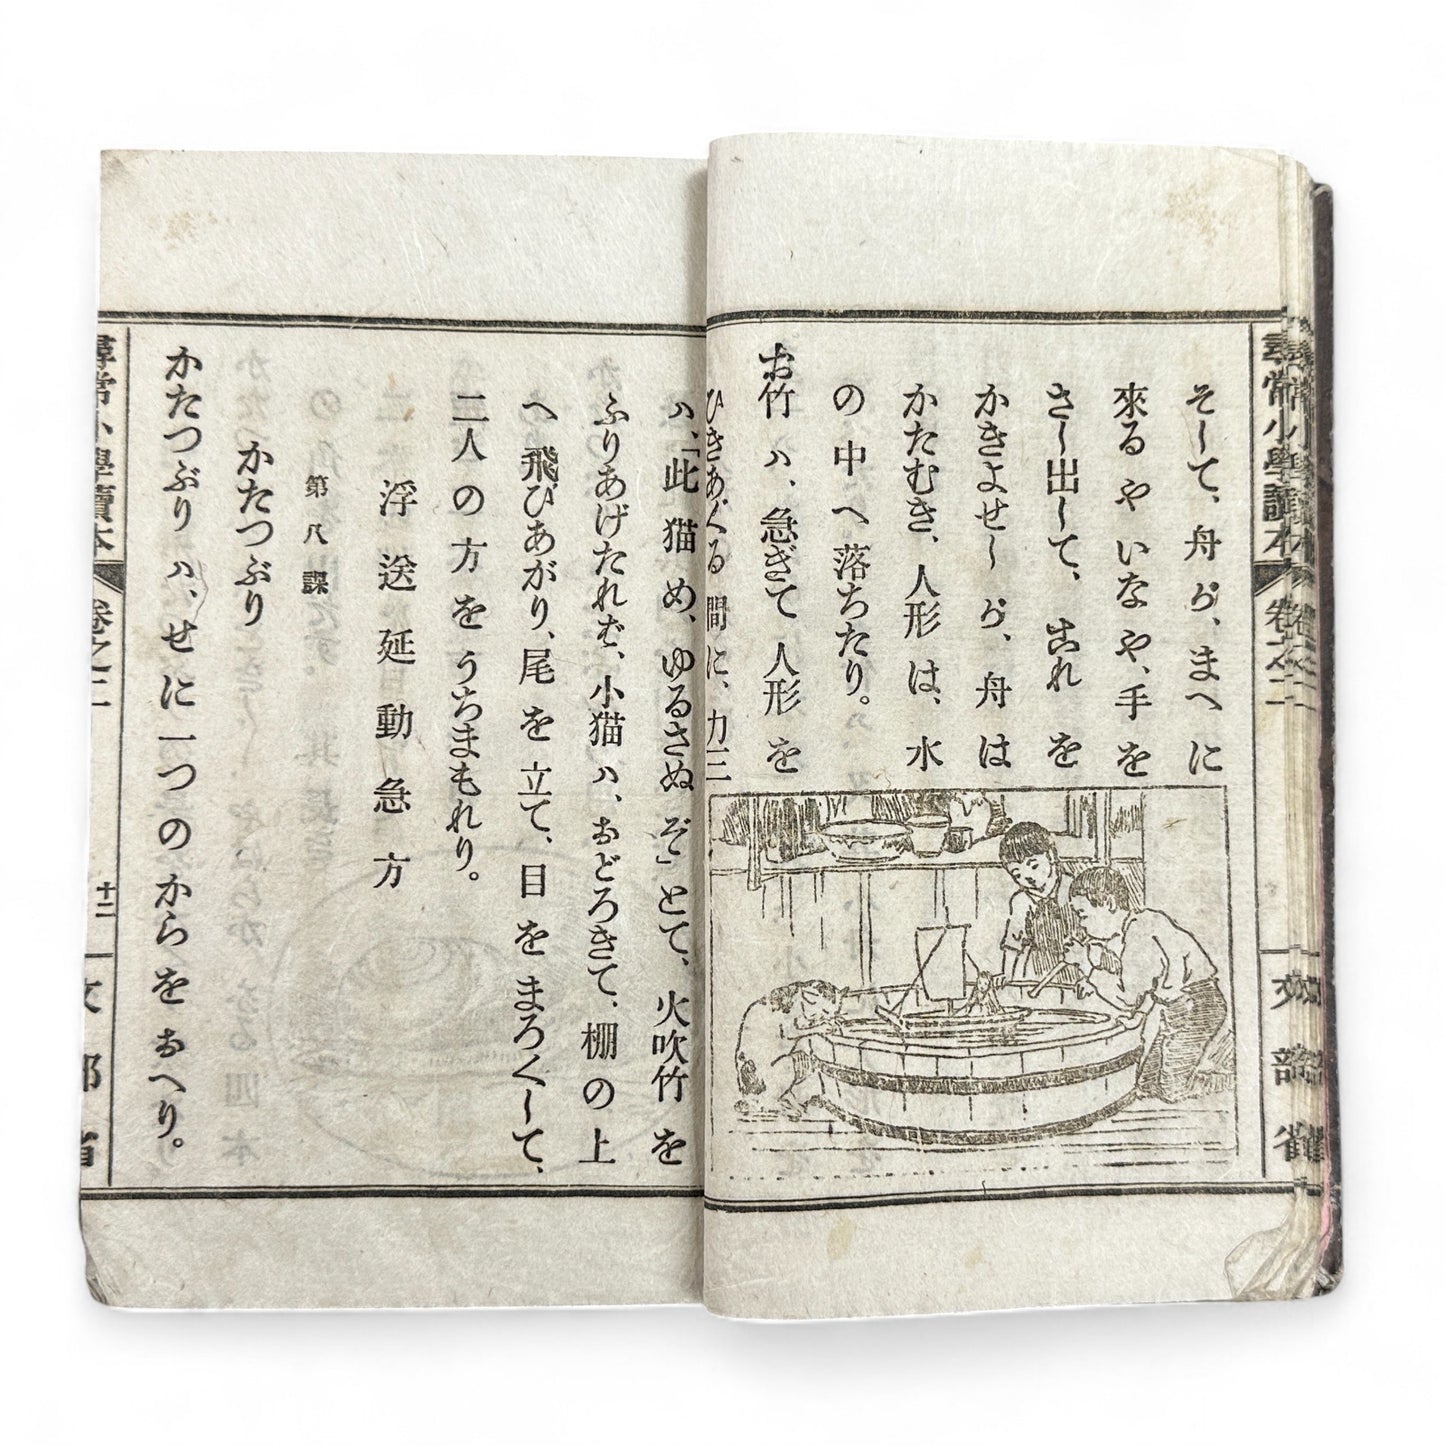 尋常小學讀本
卷之二
文部省
そして、舟が、まへに
來るやいなや、手を
さし出して、これを
かきよせしが、舟は
かたむき、人形は、水
の中へ落ちたり。
お竹ハ、急ぎて人形を
ひきあぐる間に、力三
ハ、「此猫め、ゆるさぬぞ」とて、火吹竹を
ふりあげたれば、小猫ハ、おどろきて、棚の上
へ飛びあがり、尾を立て、目をまろくして、
二人の方をうちまもれり。
浮送延動急方
第八課
かたつぶり
かたつぶりハ、せに一つのからをおへり。
尋常小學讀本
卷之二
十二
文部省